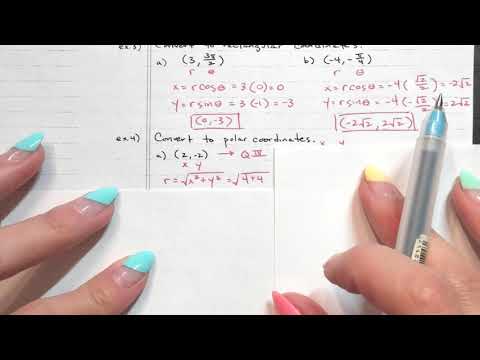 ex.3) Convert to rectangular coordinates.
a) (3, 3π/2)
r θ
x = r cosθ = 3(0) = 0
y = r sinθ = 3(-1) = -3
(0, -3)
b) (-4, -π/4)
r θ
x = r cosθ = -4(√2/2) = -2√2
y = r sinθ = -4(-√2/2) = 2√2
(-2√2, 2√2)
ex.4) Convert to polar coordinates.
x y
a) (2, -2) → Q IV
x y
r = √x² + y² = √4+4